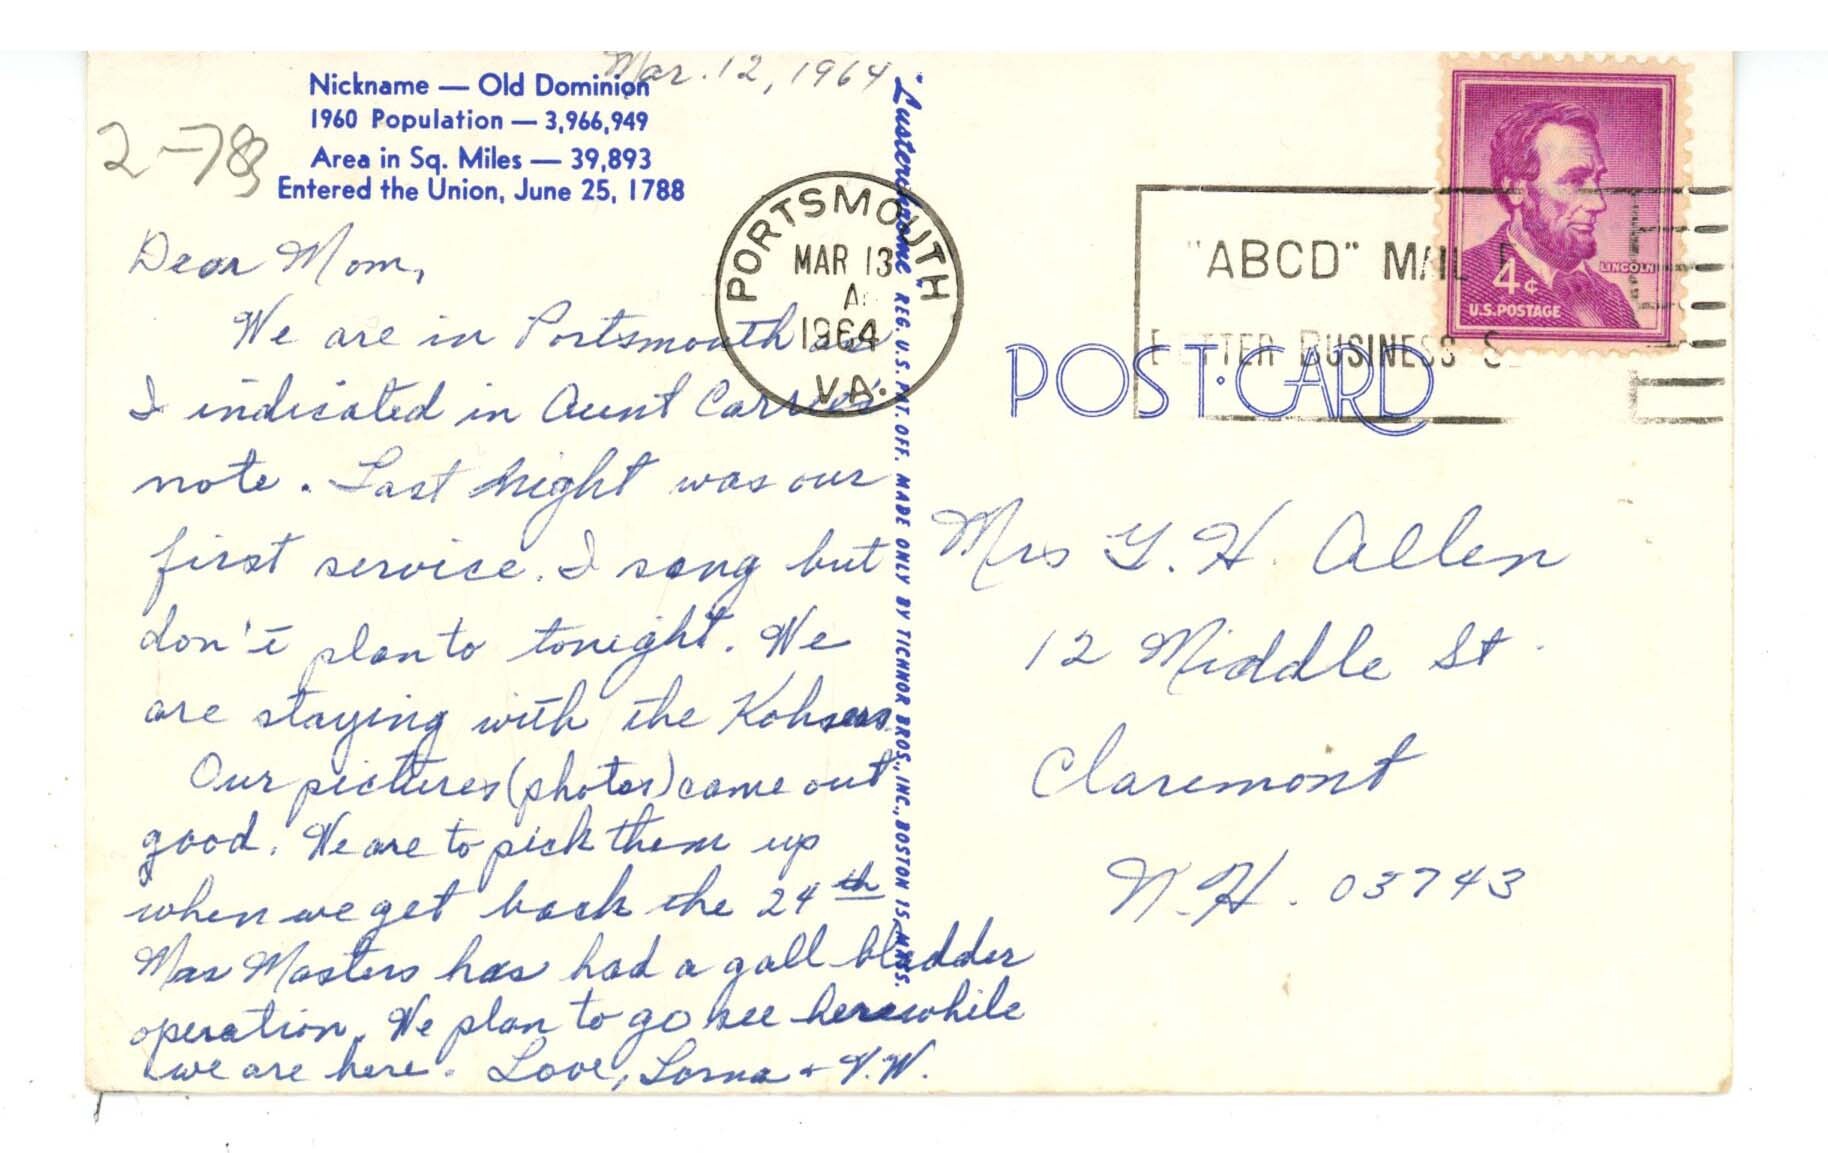 Mar. 12, 1964
Nickname — Old Dominion
1960 Population — 3,966,949
Area in Sq. Miles — 39,893
Entered the Union, June 25, 1788
2-783
Dear Mom,
We are in Portsmouth as
I indicated in Aunt Carrie's
note. Last night was our
first service. I sang but
don't plan to tonight. We
are staying with the
Our pictures (photos) came out
good. We are to pick them up
when we get back the 24th
Mrs Masters has had a gall bladder
operation. We plan to go see her while
we are here. Love, Lorna + V.W.
"Lusterchrome" REG. U.S. PAT. OFF. MADE ONLY BY TICHNOR BROS., INC., BOSTON 15, MASS.
PORTSMOUTH
MAR 13
A
1964
VA.
"ABCD" MAIL F
BETTER BUSINESS S
LINCOLN
4¢
U.S. POSTAGE
POST CARD
Mrs G. H. Allen
12 Middle St.
Claremont
N.H. 03743